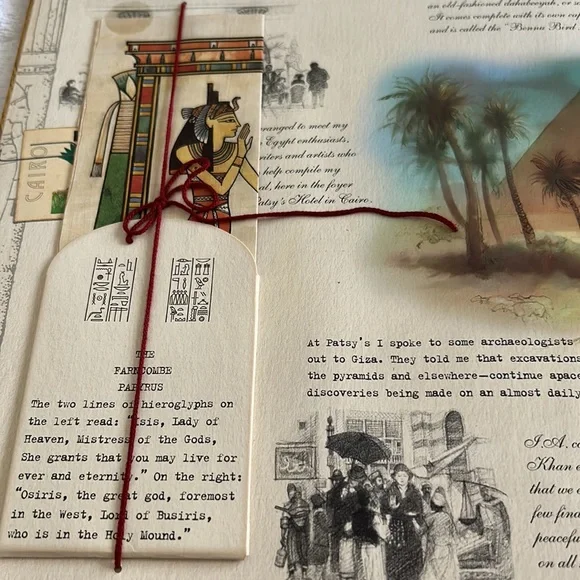 an old-fashioned dahabeeyah, or
It comes complete with its own
and is called the "Bennu Bird
CAIRO
ranged to meet my
Egypt enthusiasts,
riters and artists who
help compile my
al, here in the foyer
Patsy's Hotel in Cairo.
THE
FARNCOMBE
PAPYRUS
The two lines of hieroglyphs on
the left read: "Isis, Lady of
Heaven, Mistress of the Gods,
She grants that you may live for
ever and eternity." On the right:
"Osiris, the great god, foremost
in the West, Lord of Busiris,
who is in the Holy Mound."
At Patsy's I spoke to some archaeologists
out to Giza. They told me that excavations
the pyramids and elsewhere—continue apace
discoveries being made on an almost daily
I.A. co
Khan e
that we
few fina
peaceful
on all